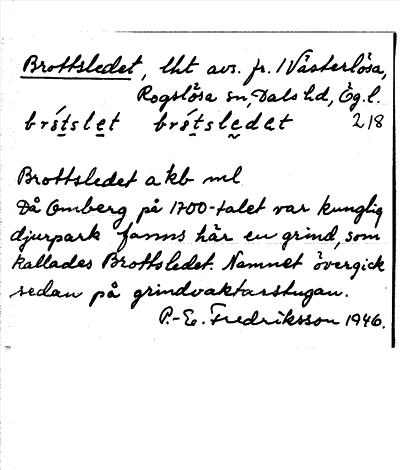 Brottsledet, lht avs. fr. 1 Västerlösa,
Rogslösa sn, Dals hd, Ög. l.
218
Brottsledet akb ml
Då Omberg på 1700-talet var kunglig
djurpark fanns här en grind, som
kallades Brottsledet. Namnet övergick
sedan på grindvaktarstugan.
P.-E. Fredriksson 1946.